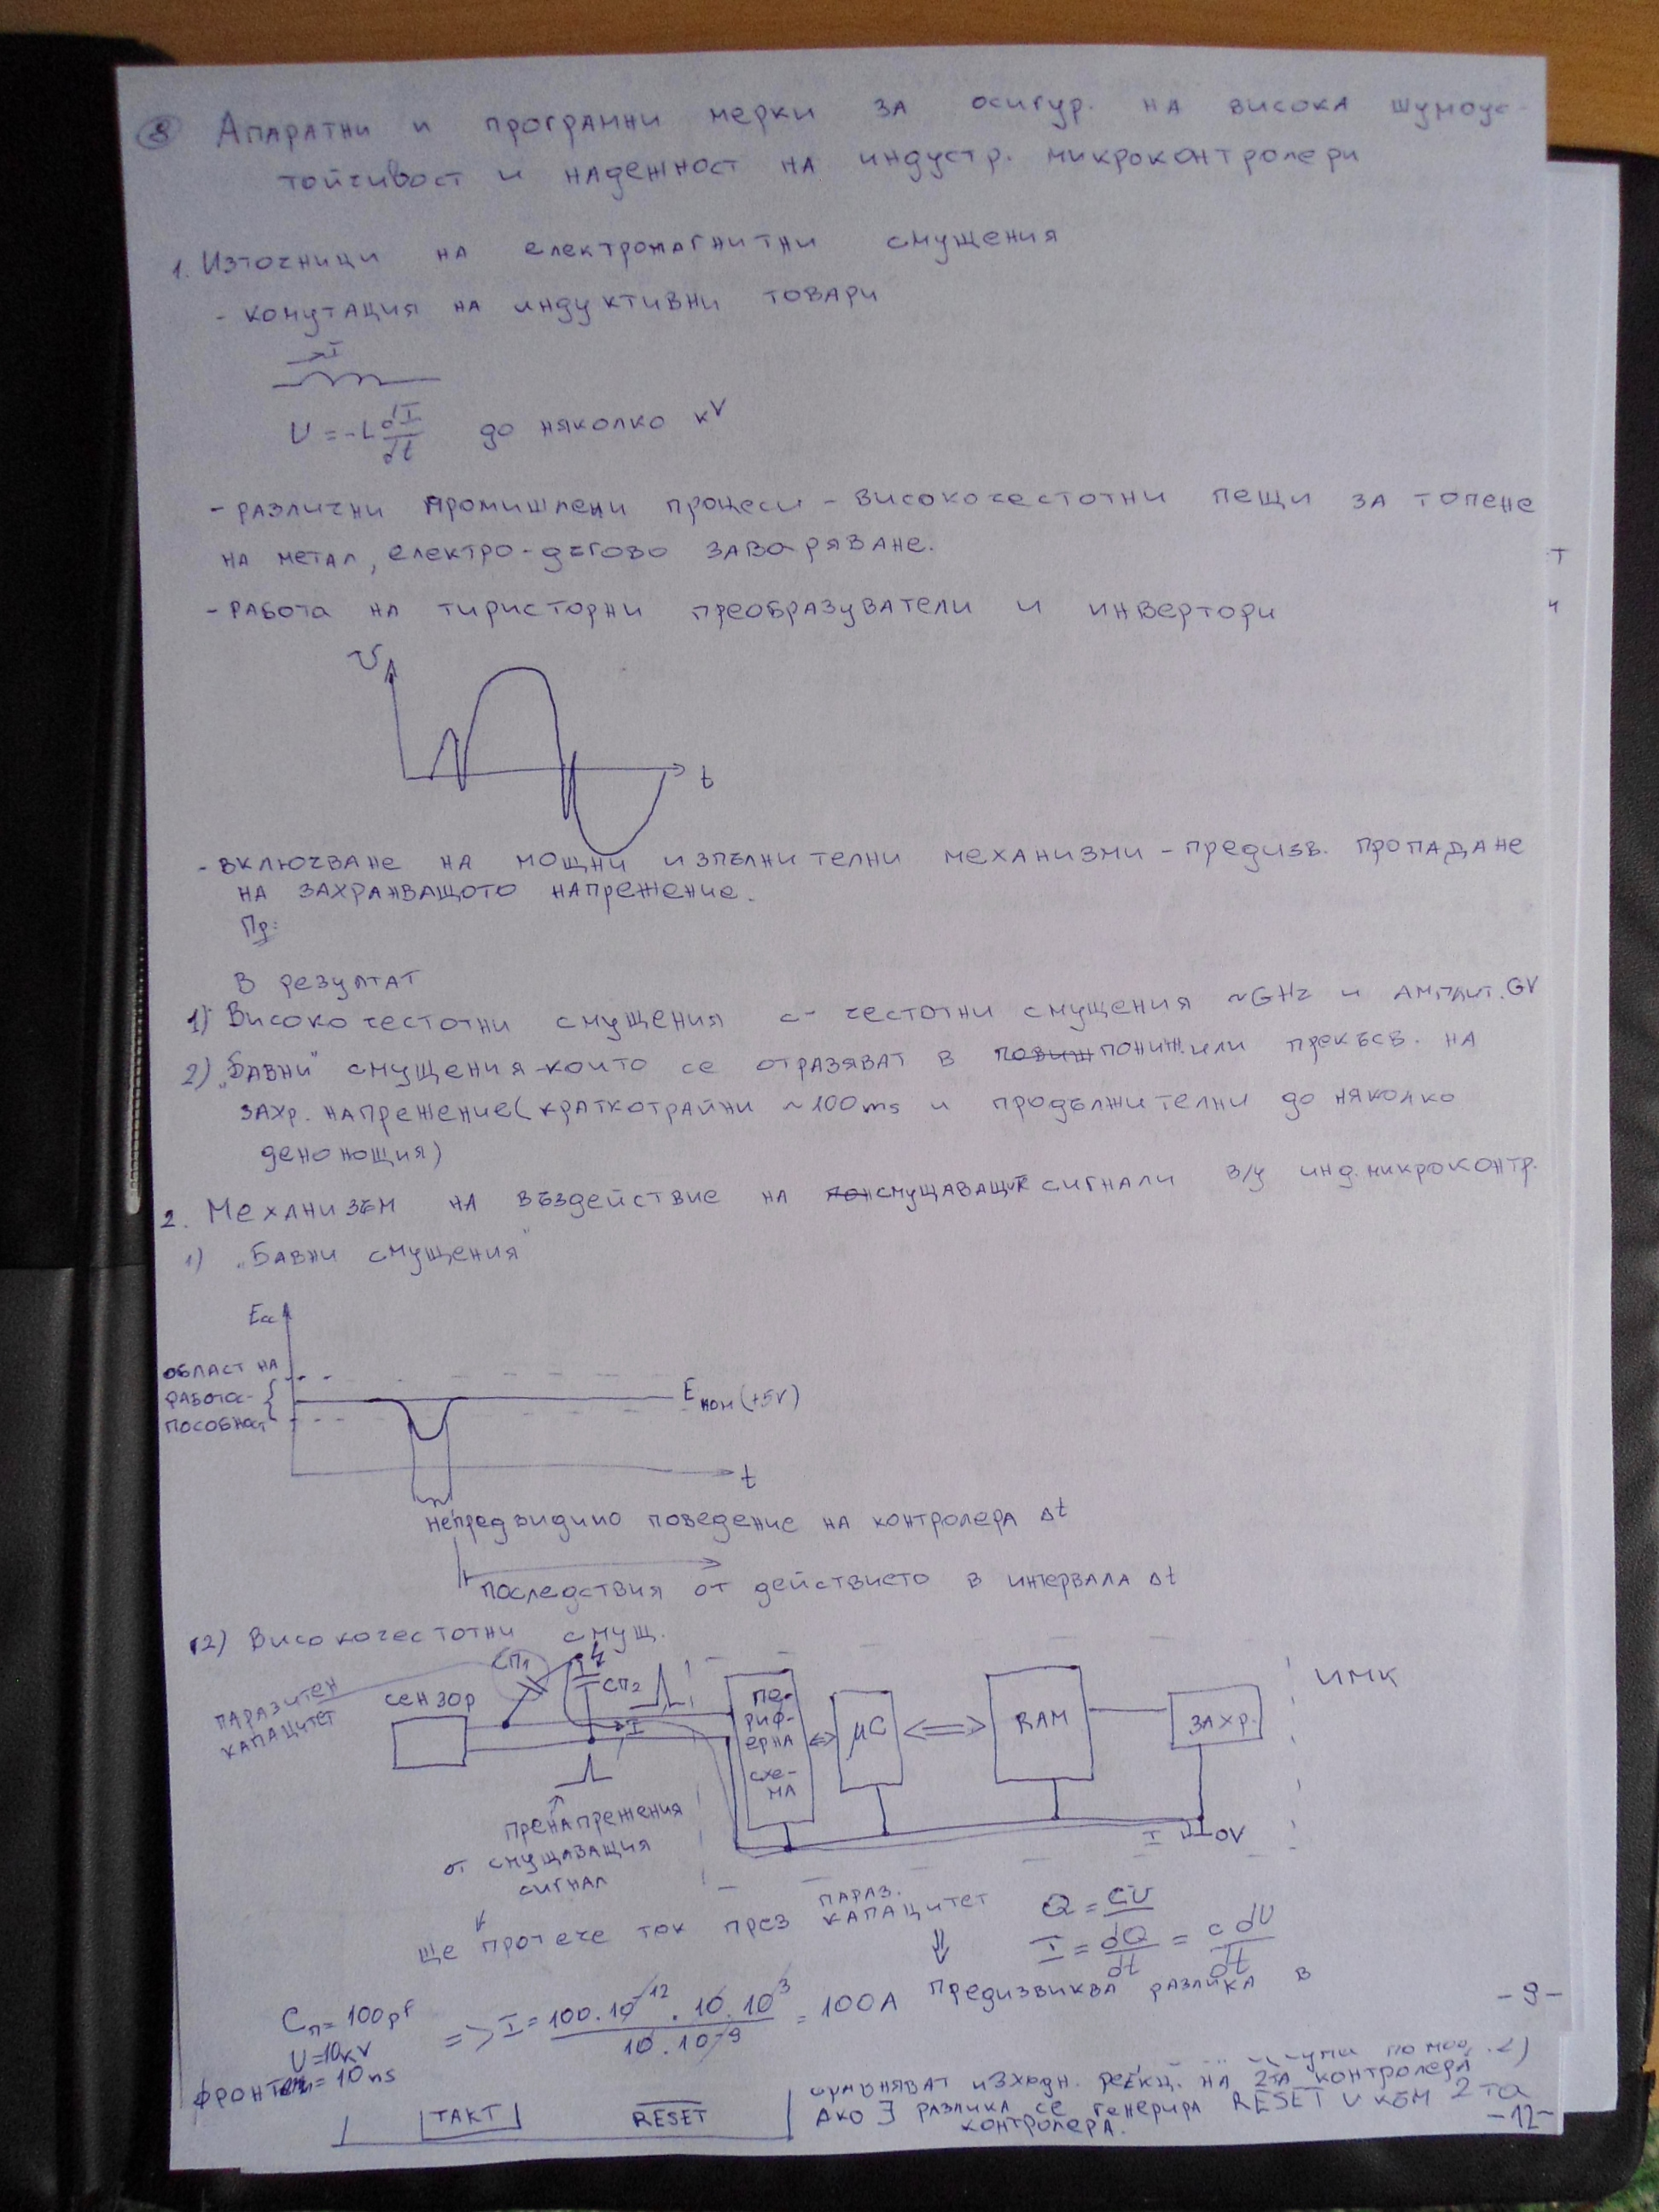 8 Апаратни и програмни мерки за осигур. на висока шумоус-
тойчивост и надежност на индустр. микроконтролери
1. Източници на електромагнитни смущения
- комутация на индуктивни товари
I
U = -L dI/dt до няколко kV
- различни промишлени процеси - високочестотни пещи за топене
на метал, електро-дъгово заваряване.
- работа на тиристорни преобразуватели и инвертори
U
t
- включване на мощни изпълнителни механизми - предизв. пропадане
на захранващото напрежение.
Пр:
В резултат
1) Високочестотни смущения с честотни смущения ~GHz и амплит. GV
2) "Бавни" смущения които се отразяват в пониж. или прекъсв. на
захр. напрежение (краткотрайни ~100ms и продължителни до няколко
денонощия)
2. Механизъм на въздействие на смущаващите сигнали в/у инд. микроконтр.
1) "Бавни смущения"
Ecc
област на
работос-
пособност
Eном (+5V)
t
непредвидимо поведение на контролера Δt
последствия от действието в интервала Δt
2) Високочестотни смущ.
паразитен
капацитет
СП1
СП2
сензор
I
пе-
риф-
ерна
схе-
ма
μC
RAM
захр.
ИМК
I
0V
пренапрежения
от смущаващия
сигнал
ще протече ток през параз. капацитет
Q = CU
I = dQ/dt = C dU/dt
Cп = 100pF
U = 10kV
фронт = 10ns
=> I = 100.10^-12 . 10.10^3 / 10.10^-9 = 100A
предизвиква разлика в
-9-
ТАКТ
RESET
изходн. реакц. на 2та контролера
Ако ∃ разлика се генерира RESET и към 2та
контролера.
-12-